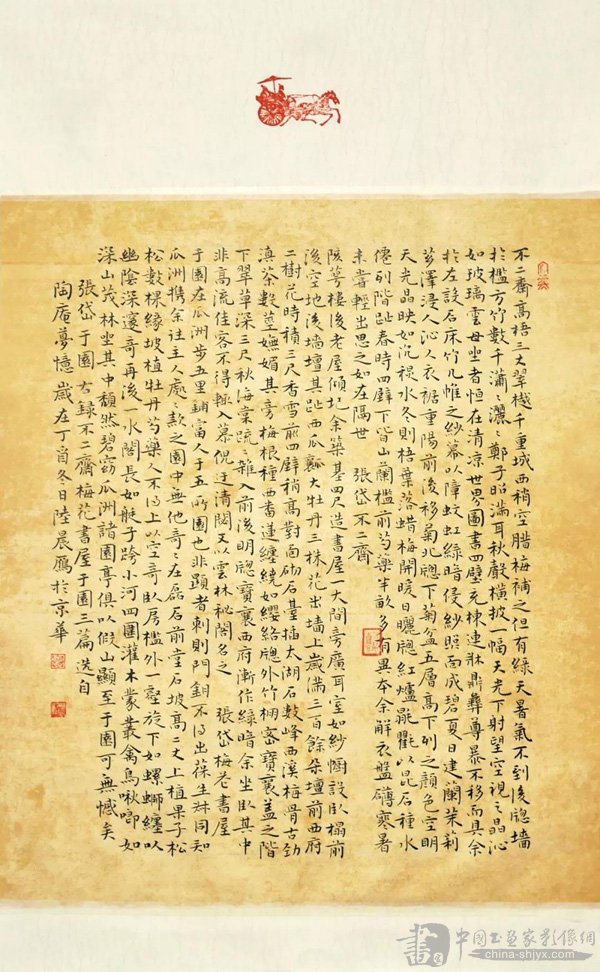 不二齋高梧三丈翠樾千重城西稍空腊梅補之但有綠天暑氣不到後牕墻
於檻方竹數千瀟〻灑〻鄭子昭滿耳秋聲橫披一幅天光下射望空視之晶沁
如玻璃雲母坐者恒在清凉世界圖書四壁充棟連牀鼎彝尊罍不移而具余
於左設石床竹几帷之紗幕以障蚊虹綠暗侵紗照面成碧夏日建蘭茉莉
薌澤浸人沁人衣裾重陽前後移菊北牕下菊盆五層高下列之顏色空明
天光晶映如沉祿水冬則梧葉落蜡梅開暖日曬牕紅爐毾㲪以昆石種水
僊列階趾春時四壁下皆山蘭檻前芍藥半畝多有異本余解衣盤礴寒暑
未嘗輕出思之如在隔世 張岱不二齋
陔萼樓後老屋傾圮余築基四尺造書屋一大間旁廣耳室如紗㡡設臥榻前
後空地後墻壇其趾西瓜瓤大牡丹三株花出墻上歲滿三百餘朵壇前西府
二樹花時積三尺香雪前四壁稍高對面砌石臺插太湖石數峰西溪梅骨古勁
滇茶數莖嫵媚其旁梅根種西番蓮纏繞如纓絡牕外竹棚密寶襄蓋之階
下翠草深三尺秋海棠疏〻雜入前後明牕寶襄西府漸作綠暗余坐臥其中
非高流佳客不得輒入慕倪迂清閟又以雲林秘閣名之 張岱梅花書屋
于園在瓜洲步五里鋪富人于五所園也非顯者刺則門鑰不得出葆生叔同知
瓜洲攜余往主人處〻款之園中無他奇〻在磊石前堂石坡高二丈上植果子松
松數棵緣坡植牡丹芍藥人不得上以空奇臥房檻外一壑旋下如螺螄纏以
幽陰深邃奇再後一水閣長如艇子跨小河四圍灌木蒙叢禽鳥啾唧如
深山茂林坐其中頹然碧窈瓜洲諸園亭俱以假山顯至于園可無憾矣
張岱于園 右錄不二齋梅花書屋于園三篇选自
陶庵夢憶 歲在丁酉冬日陸晨鷹於京華
中国书画家影像網
china-shjyx.com